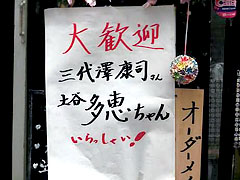 大歓迎
三代澤康司さん
土谷多恵ちゃん
いらっしゃい!
オーダーメイ